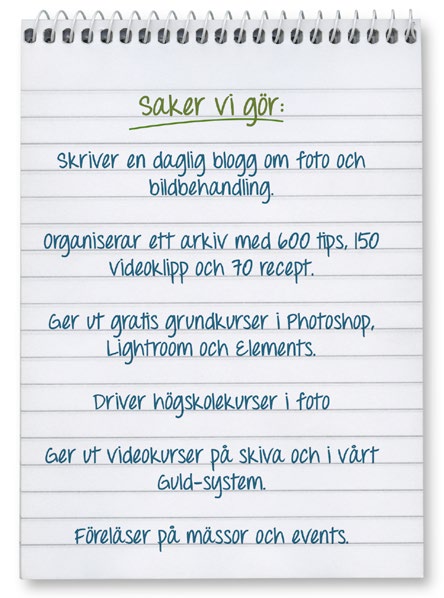 Saker vi gör:
Skriver en daglig blogg om foto och
bildbehandling.
Organiserar ett arkiv med 600 tips, 150
videoklipp och 70 recept.
Ger ut gratis grundkurser i Photoshop,
Lightroom och Elements.
Driver högskolekurser i foto
Ger ut videokurser på skiva och i vårt
Guld-system.
Föreläser på mässor och events.